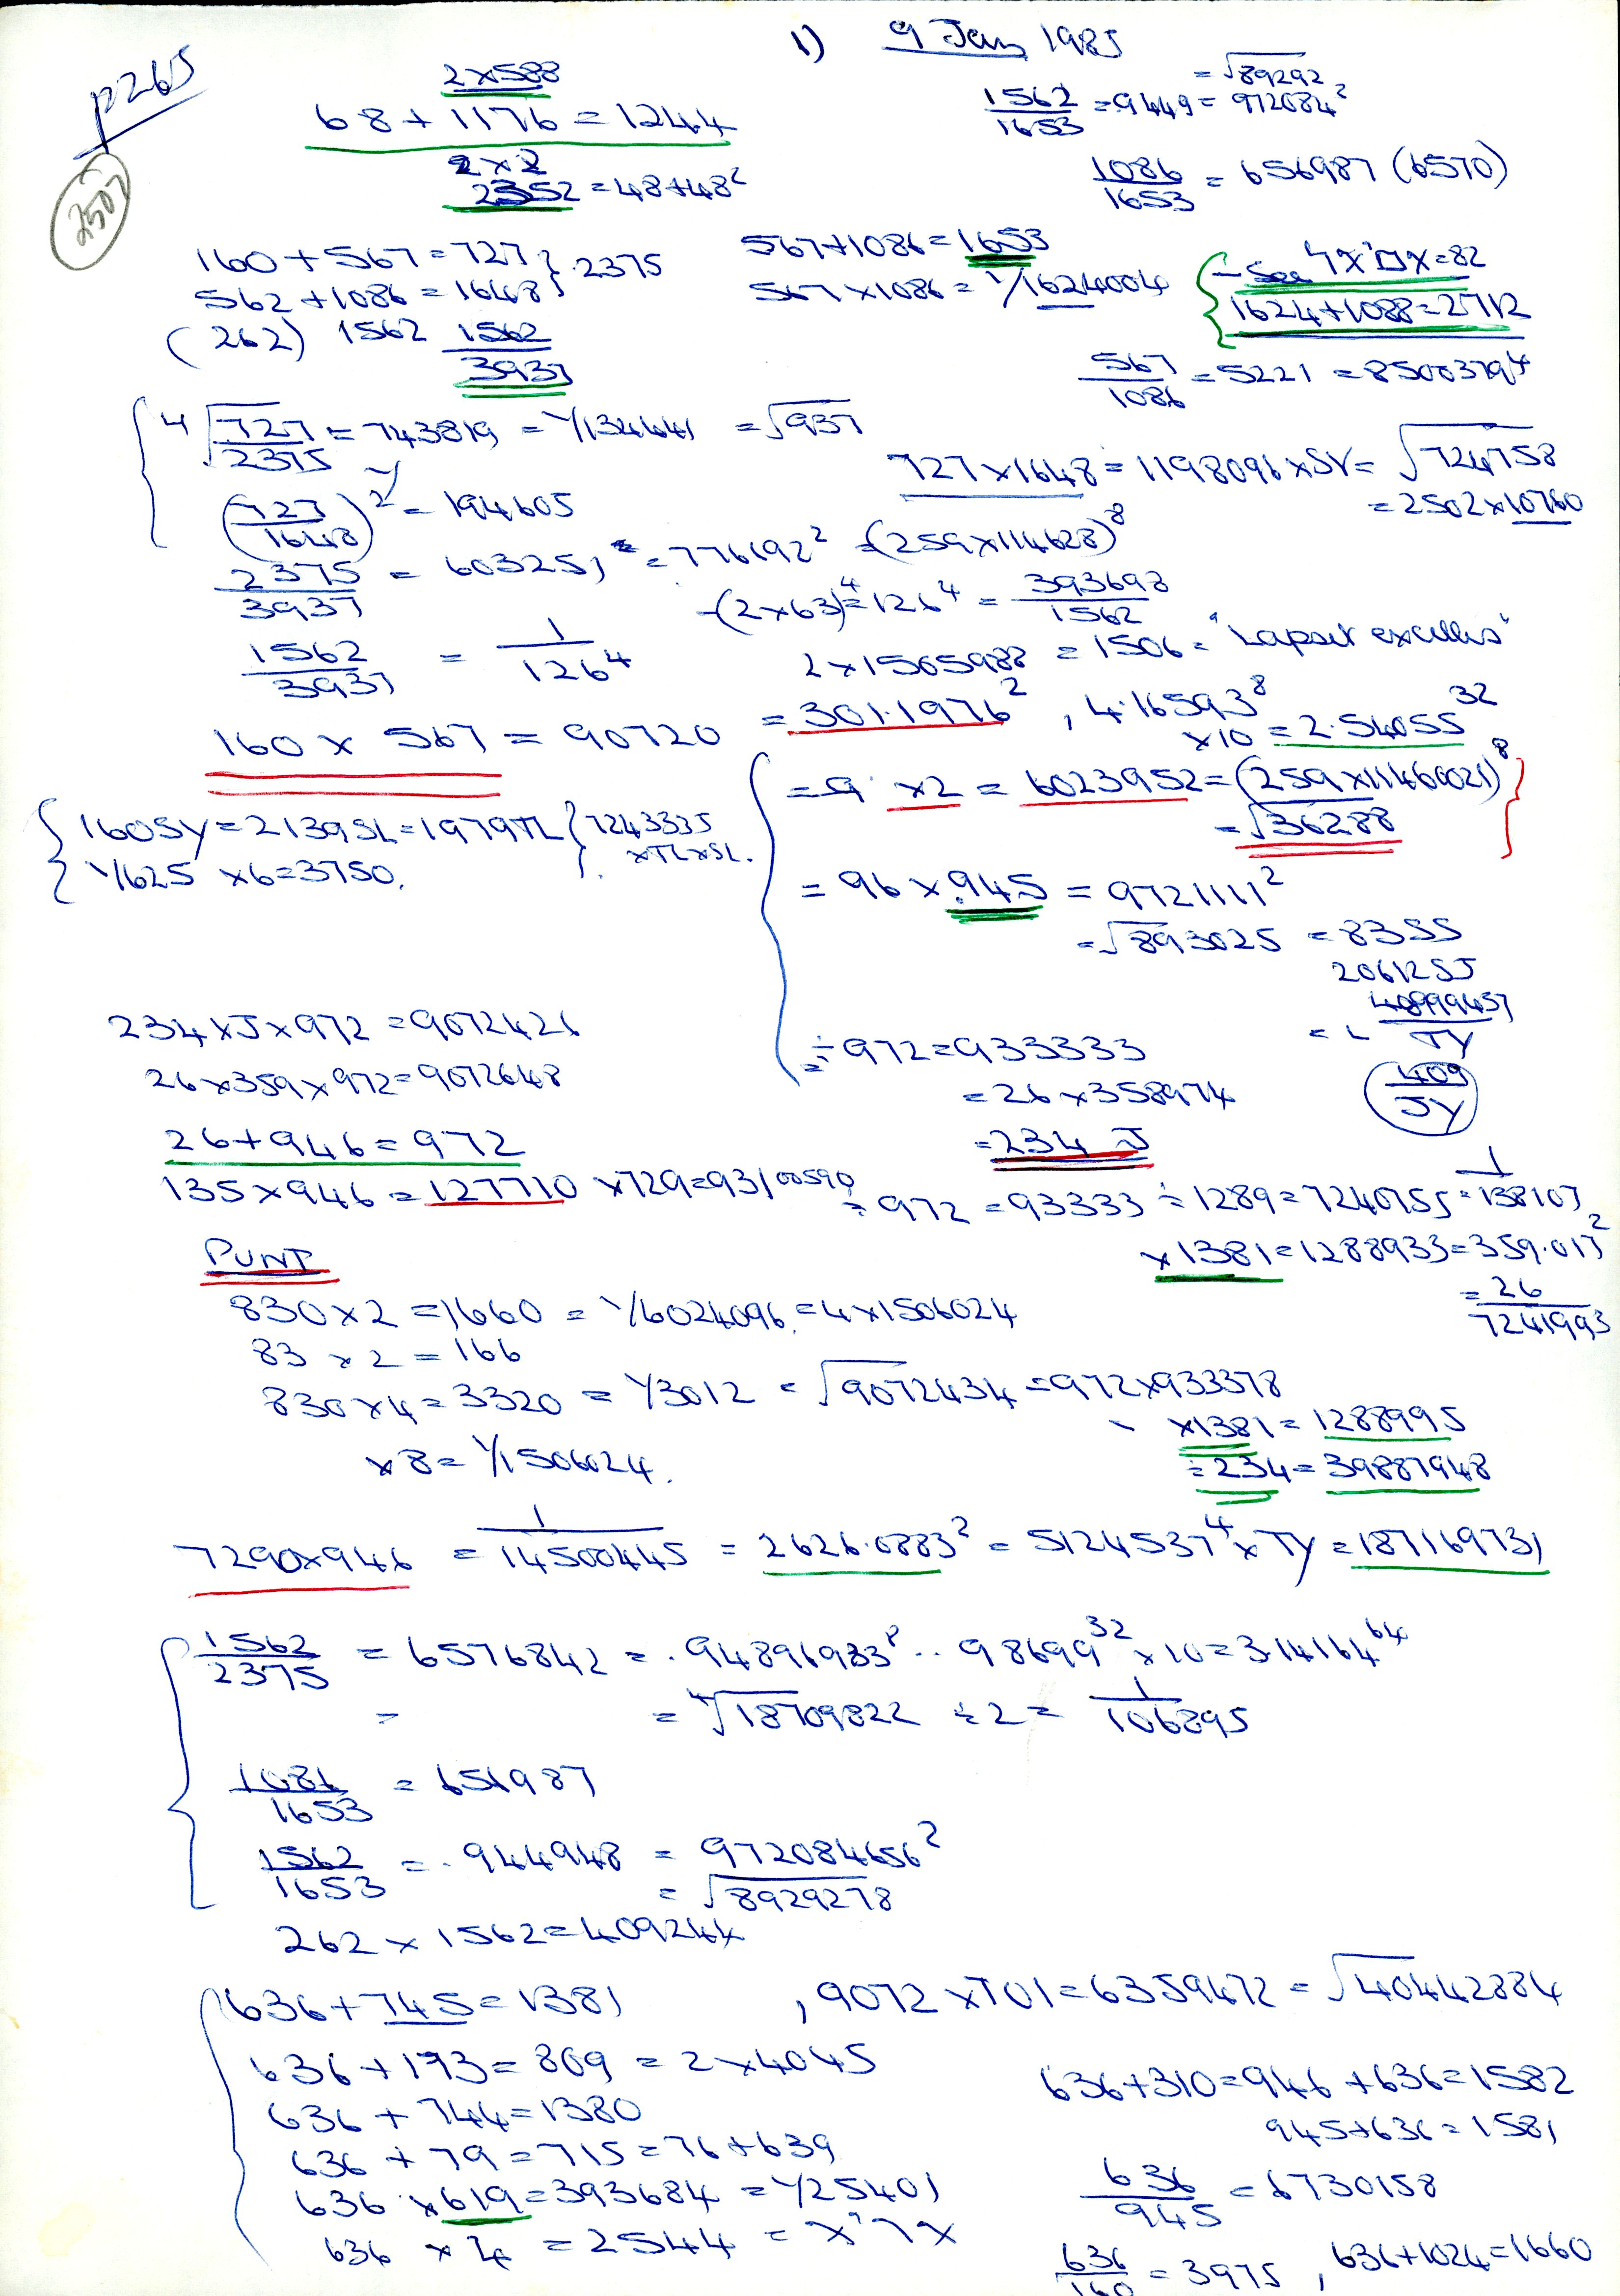 1) 9 Jan 1985
p265
2507
2×588
68+1176=1244
2×2
2352=48+48²
1562/1653 = .9449 = 972084²
= √89292
1086/1653 = 656987 (6570)
160+567=727 } 2375
562+1086=1648
(262) 1562 1562/3937
567+1086=1653
567×1086= 1/1624004
1624+1088=2712
567/1086 = 5221 = 8500379⁴
⁴√727/2375 = 743819 = 1/134441 = √937
(727/1648)² = 194605
727×1648 = 1198096×SY= √724758
= 2502×10760
2375/3937 = 603251 = 776692² = (259×114628)⁸
1562/3937 = 1/126⁴
(2×63)⁴=126⁴ = 393698/1562
2×1505988 = 1506 = "Lapsit excillis"
160 × 567 = 90720 = 301.1976², 4.16593⁸
×10 = 2.54055³²
= 9 ×2 = 6023952 = (259×11460021)⁸
= √36288
160SY=2139SL=1979TL { 7243335
×TL×SL.
1/625 ×6=3750.
= 96×.945 = 9721111²
= √893025 = 8355
206125J
= L 40999457/TY
409/JY
÷972=933333
= 26×358974
= 234 J
234×J×972=9072426
26×359×972=9072648
26+946=972
135×946=127710 ×729=93100590
÷972=93333 ÷1289=7240755=1/138107
×1381=1288933=359.017²
= 26/7241993
PUNT
830×2=1660 = 1/6024096 = 4×1506024
83 × 2 = 166
830×4=3320 = 1/3012 = √9072434 = 972×933378
×8= 1/1506024.
×1381 = 1288995
÷234 = 39887948
7290×946 = 1/14500445 = 2626.0883² = 5124537⁴×TY = 187169731
1562/2375 = 6576842 = .94896983⁸ .. 98699³² ×10=3.14164⁶⁴
= = ⁴√18709822 ÷2= 1/106895
1086/1653 = 656987
1562/1653 = .944948 = 972084656²
= √8929278
262×1562=409244
636+745=1381
, 9072×701=6359472 = √40442884
636+173=809 = 2×4045
636+744=1380
636+79=715=76+639
636×619=393684 = 1/25401
636×4 = 2544
636+310=946+636=1582
945+636=1581
636/945 = 6730158
636/160 = 3975, 636+1024=1660